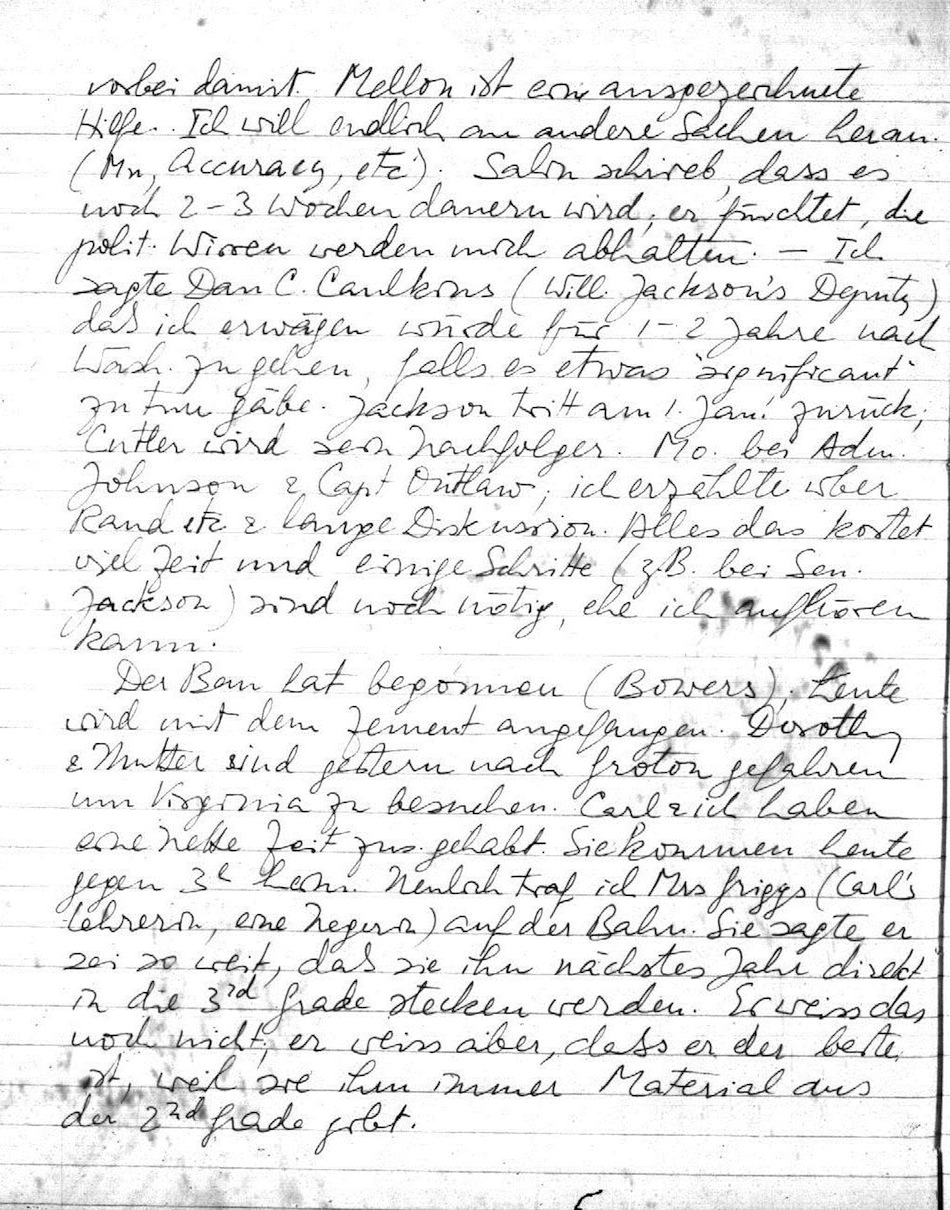 vorbei damit. Mellon ist eine ausgezeichnete
Hilfe. Ich will endlich an andere Sachen heran.
(Mn, Accuracy, etc). Salin schrieb, dass es
noch 2-3 Wochen dauern wird, er fürchtet, die
polit. Wirren werden mich abhalten. — Ich
sagte Dan C. Caulkins (Will. Jackson's Deputy)
daß ich erwägen würde für 1-2 Jahre nach
Wash. zu gehen, falls es etwas "significant"
zu tun gäbe. Jackson tritt am 1. Jan. zurück;
Cutler wird sein Nachfolger. Mo. bei Adm.
Johnson & Capt Outlaw; ich erzählte über
Rand etc & lange Diskussion. Alles das kostet
viel Zeit und einige Schritte (z.B. bei Sen.
Jackson) sind noch nötig, ehe ich aufhören
kann.
Der Bau hat begonnen (Bowers). Heute
wird mit dem Zement angefangen. Dorothy
& Mutter sind gestern nach Groton gefahren
um Virginia zu besuchen. Carl & ich haben
eine nette Zeit zus. gehabt. Sie kommen heute
gegen 3h heim. Neulich traf ich Mrs Griggs (Carl's
Lehrerin, eine Negerin) auf der Bahn. Sie sagte er
sei so weit, daß sie ihn nächstes Jahr direkt
in die 3rd Grade stecken werden. Er weiss das
noch nicht, er weiss aber, dass er der beste
ist, weil sie ihm immer Material aus
der 2nd Grade gibt.